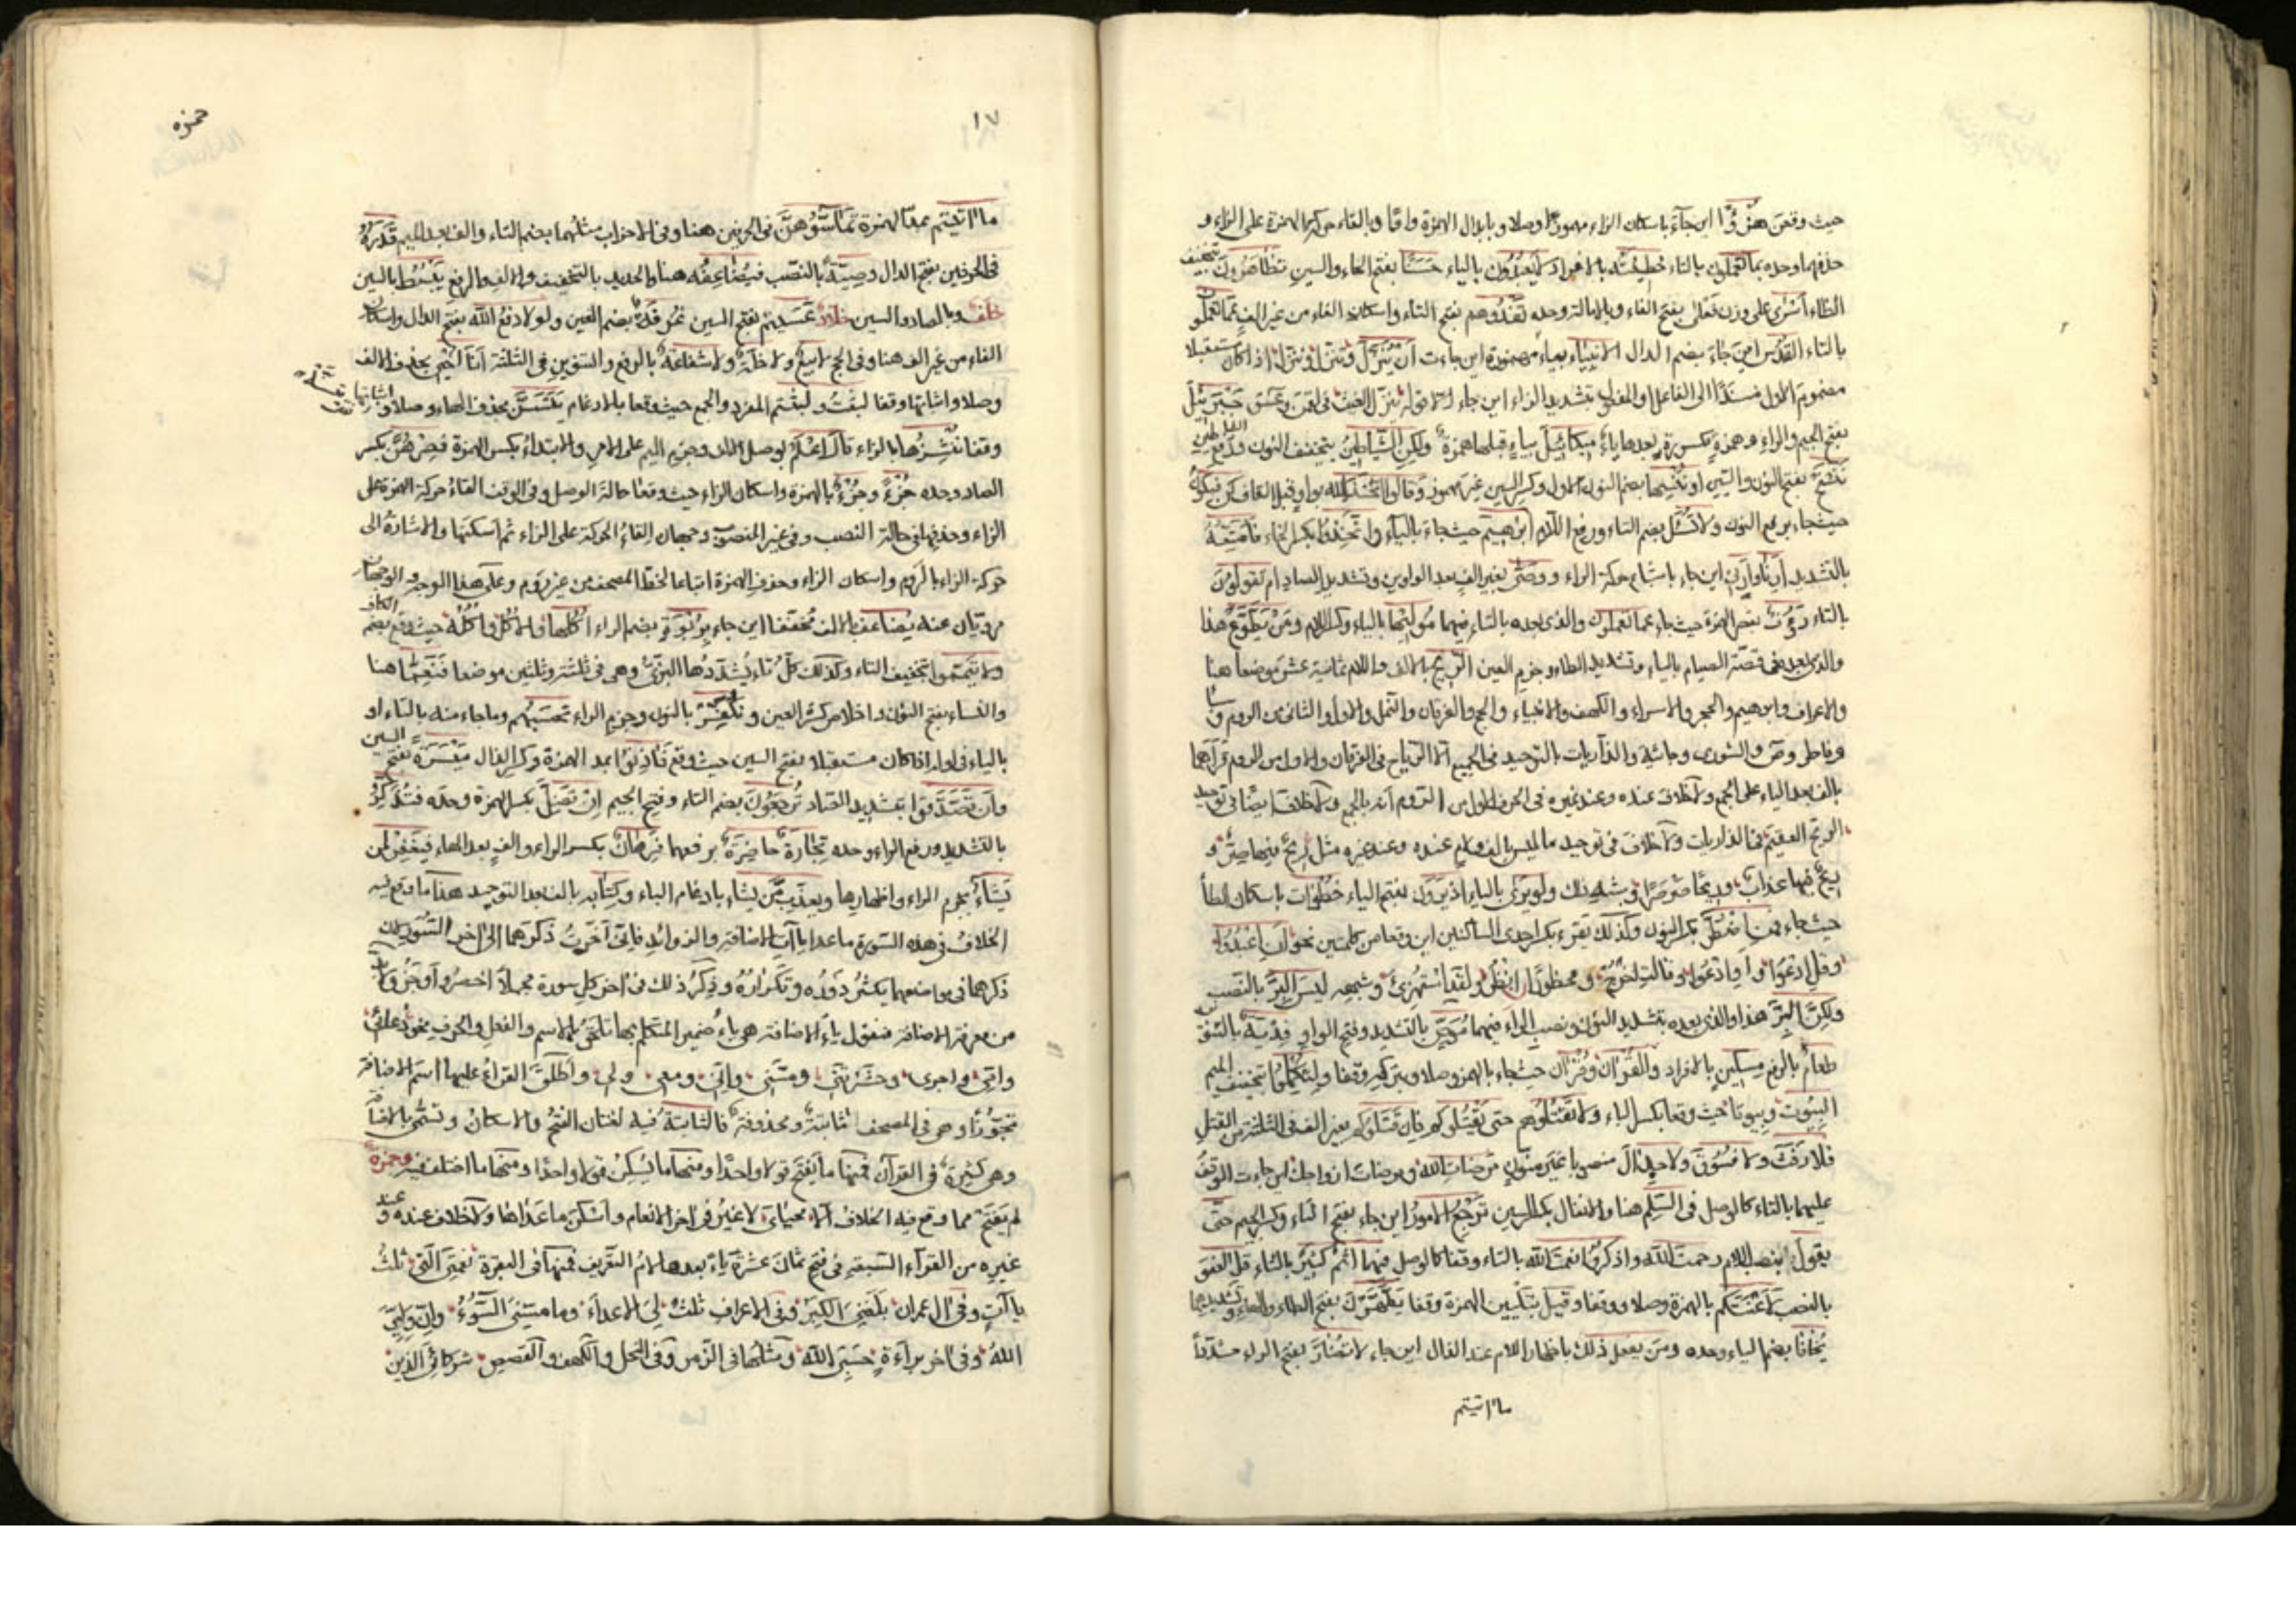 حيث وقعن هُزُؤًا اين جآء باسكان الزاء مهموزًا وصلا وبابدال الهمزة واوًا وبالقاء حركة الهمزة على الزاء و
حذفها وحده بما تعملون بالتاء خطيئته بالافراد لا يعبدون بالياء حَسَنًا بفتح الحاء والسين تظاهرون بتخفيف
الظاء أسْرٰى على وزن فَعْلٰى بفتح الفاء وبالامالة وحده تَفْدُوهم بفتح التاء واسكان الفاء من غير الف عما تعملون
بالتاء القُدُس اين جآء بضم الدال الانبياء بياء اين جاءت أن يُنَزّل وتنزل وننزل اذا كان مستقبلا
مضموم الاول مسندًا الى الفاعل او المفعول بتشديد الزاء اين جاء الا قوله ينزل الغيث فى لقمن وعسق جَبْرَئِيل
بفتح الجيم والراء وهمزة مكسورة بعدها ياء ميكائيل بياء قبلها همزة ولكن الشياطين بتخفيف النون ورفع الشياطين
نَنْسَخ بفتح النون والسين او نُنْسِها بضم النون الاول وكسر السين غير مهموز وقالوا اتخذ الله بواو قبل القاف كن فيكونُ
حيث جاء برفع النون ولا تُسْئَلُ بضم التاء ورفع اللام ابرٰهيم حيث جاء بالياء واتخِذوا بكسر الخاء فأُمَتِّعُهُ
بالتشديد أرنا وأرنى اين جاء باشمام حركة الراء ووصّٰى بغير الف بعد الواوين وتشديد الصاد ام تقولون
بالتاء رؤف بقصر الهمزة حيث جاء عما تعملون والذى بعده بالتاء فيهما مُوَلِّيها بالياء وكسر اللام ومن يطّوّع هذا
والذى بعده فى قصّة الصيام بالياء وتشديد الطاء وجزم العين الريح بالالف واللام ثمانية عشر موضعا هنا
والاعراف وابرهيم والحجر والاسراء والكهف والانبياء والحج والفرقان والنمل والاول والثانى من الروم وسبا
وفاطر وص والشورى وجاثية والذاريات بالتوحيد فى الجميع الا الرياح فى الفرقان والاول من الروم قرأهما
بالف بعد الياء على الجمع ولا خلاف عنده وعند غيره فى الحرف الاول من الروم انه بالجمع ولا خلاف ايضًا فى توحيد
الريح العقيم فى الذاريات ولا خلاف فى توحيد ما ليس بالف ولام عنده وعند غيره مثل ريح فيها صِرّ و
ريحٌ فيها عذاب وريحًا صرصرًا وشبه ذلك ولو يرى بالياء اذ يَرَون بفتح الياء خُطْوات باسكان الطاء
حيث جاء فمنِ اضطُرّ بكسر النون وكذلك يقرء بكسر احدى الساكنين اين وقعا من كلمتين نحو أنِ اعبدوا
وقلِ ادعوا أوِ ادعوا وقالتِ اخرج ومحظورًا انظر ولقدِ استهزئ وشبهه ليس البِرَّ بالنصب
ولكنَّ البِرَّ هذا والذى بعده بتشديد النون ونصب الراء فيهما مُوَصٍّ بالتشديد وفتح الواو فديةٌ بالتنوين
طعامُ بالرفع مسكين بالافراد والقرآن وقرآن حيث جاء بالهمز وصلا وبتركه وقفا ولتكملوا بتخفيف الميم
البِيُوت وبيوتا حيث وقعا بكسر الباء ولا تقتلوهم حتى يقتلوكم فان قتلوكم بغير الف فى الثلثة من القتل
فلا رفثَ ولا فسوقَ ولا جدالَ منصوبا غير منون مرضات الله ومرضات ازواجك اين جاءت الوقف
عليهما بالتاء كالوصل فى السِّلم هنا والانفال بكسر السين تَرْجِعُ الامور اين جاء بفتح التاء وكسر الجيم حتى
يقولَ بنصب اللام رحمت الله واذكروا نعمت الله بالتاء وقفا كالوصل فيهما اثم كثير بالثاء قل العفوَ
بالنصب لأعنتكم بالهمزة وصلا ووقفا وقيل بتليين الهمزة وقفا يطّهّرن بفتح الطاء والهاء وتشديدهما
يُخافا بضم الياء وحده ومن يفعل ذلك باظهار اللام عند الذال اين جاء لا تضارَّ بفتح الراء مشدّدًا
ما آتيتم
١٧
حمزه
ما آتيتم بمد الهمزة تماسّوهن فى الحرفين هنا وفى الاحزاب مثلهما بضم التاء والف بعد الميم قَدَرُهُ
فى الحرفين بفتح الدال وصيّةً بالنصب فيضاعفُه هنا والحديد بالتخفيف والالف والرفع يبسط بالسين
خلف وبالصاد والسين خلاد عَسَيتم بفتح السين غُرفة بضم الغين ولولا دَفْعُ الله بفتح الدال واسكان
الفاء من غير الف هنا وفى الحج لا بيعٌ ولا خلةٌ ولا شفاعةٌ بالرفع والتنوين فى الثلثة أنا أحيى بحذف الالف
وصلا واثباتها وقفا لبثت ولبثتم المفرد والجمع حيث وقعا بالادغام يتسنّ بحذف الهاء وصلا واثباتها
وقفا ننشزها بالزاء قال اعلم بوصل الالف وجزم الميم على الامر والابتداء بكسر الهمزة فصِرهن بكسر
الصاد وحده جزءٌ وجزءًا بالهمزة واسكان الزاء حيث وقعا حالة الوصل وفى الوقف القاء حركة الهمزة على
الزاء وحذفها فى حالة النصب وفى غير المنصوب وجهان القاء الحركة على الزاء ثم اسكنها والاشارة الى
حركة الزاء بالروم واسكان الزاء وحذف الهمزة اتباعا لخط المصحف من غير روم وعلى هذا الوجه الوجهان
مرويان عنه يضاعف بالالف مخففا اين جاء بِرُبوة بضم الراء أُكُلها والأُكُل وأُكُله حيث وقع بضم الكاف
ولا تيمموا بتخفيف التاء وكذلك كلّ تاء يُشدّدها البزّى وهى فى ثلثة وثلثين موضعا فنَعِمّا هنا
والنساء بفتح النون واخلاص كسرة العين ونكفّرْ بالنون وجزم الراء تحسَبهم وما جاء منه بالتاء او
بالياء فى اوله اذا كان مستقبلا بفتح السين حيث وقع فآذِنوا بمد الهمزة وكسر الذال ميسَرة بفتح السين
وأن تصّدّقوا بتشديد الصاد تُرجَعون بضم التاء وفتح الجيم إن تضلّ بكسر الهمزة وحده فتذكّرُ
بالتشديد ورفع الراء وحده تجارةٌ حاضرةٌ برفعهما فرِهانٌ بكسر الراء والف بعد الهاء فيغفرْ لمن
يشاء بجزم الراء واظهارها ويعذبْ من يشاء بادغام الباء وكتابه بالف بعد التوحيد هذا ما وقع فيه
الخلافُ فى هذه السورة ما عدا ياآت الاضافة والزوائد فانى أخّرتُ ذكرهما الى اخر السورة لان
ذكرهما فى مواضعهما يكثر دَورُه وتكراره وذِكرُ ذلك فى اخر كل سورة مجملًا اخصر وأوجز ولا بد
من معرفة الاضافة فنقول ياءُ الاضافة هى ياءُ ضمير المتكلم بها تلحق بالاسم والفعل والحرف نحو
وانى واجرى وحشرتنى ومسّنى وانّى ومعى ولى وأطلق القراءُ عليها اسم الاضافة
تجوّزًا وهى فى المصحف ثابتةٌ ومحذوفة فالثابتة فيه لغتان الفتحُ والاسكانُ وتسمّى بالاضافة
وهى كثيرة فى القرآن فمنها ما يُفتح قولا واحدًا ومنها ما يُسكن قولا واحدًا ومنها ما اختلف فيه وحمزة
لم يفتح مما وقع فيه الخلاف الا محياى لا غير فى اخر الانعام وأسكن ما عداها ولا خلاف عنده وعند
غيره من القراء السبعة فى فتح ثمان عشرة ياءً بعدها لامُ التعريف فمنها فى البقرة نعمتى التى ثلثُ
ياآتٍ وفى آل عمران بلغنى الكبر وفى الاعراف ثلثٌ بى الاعداءَ وما مسّنى السوءُ وانّ وليّى
اللهُ وفى اخر براءةٍ حسبى الله ومثلها فى الزمر وفى النحل والكهف والقصص شركائى الذين